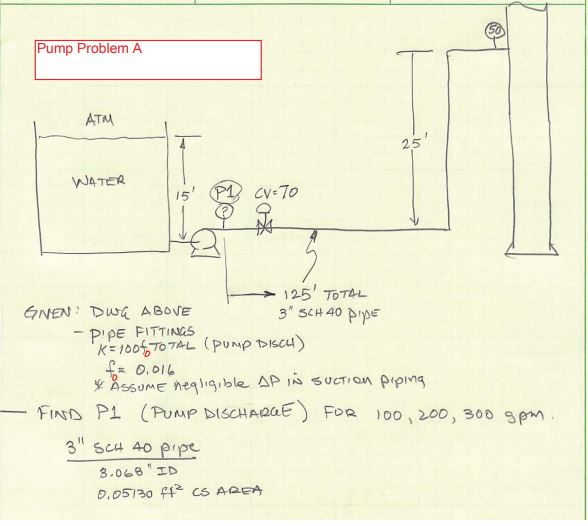 Pump Problem A
50
ATM
25'
WATER
15'
P1
?
CV=70
125' TOTAL
3" SCH 40 PIPE
GIVEN: DWG ABOVE
- PIPE FITTINGS
K=100f_D TOTAL (PUMP DISCH)
f_D = 0.016
* ASSUME negligible ΔP IN SUCTION PIPING
— FIND P1 (PUMP DISCHARGE) FOR 100, 200, 300 gpm.
3" SCH 40 pipe
3.068" ID
0.05130 ft² CS AREA